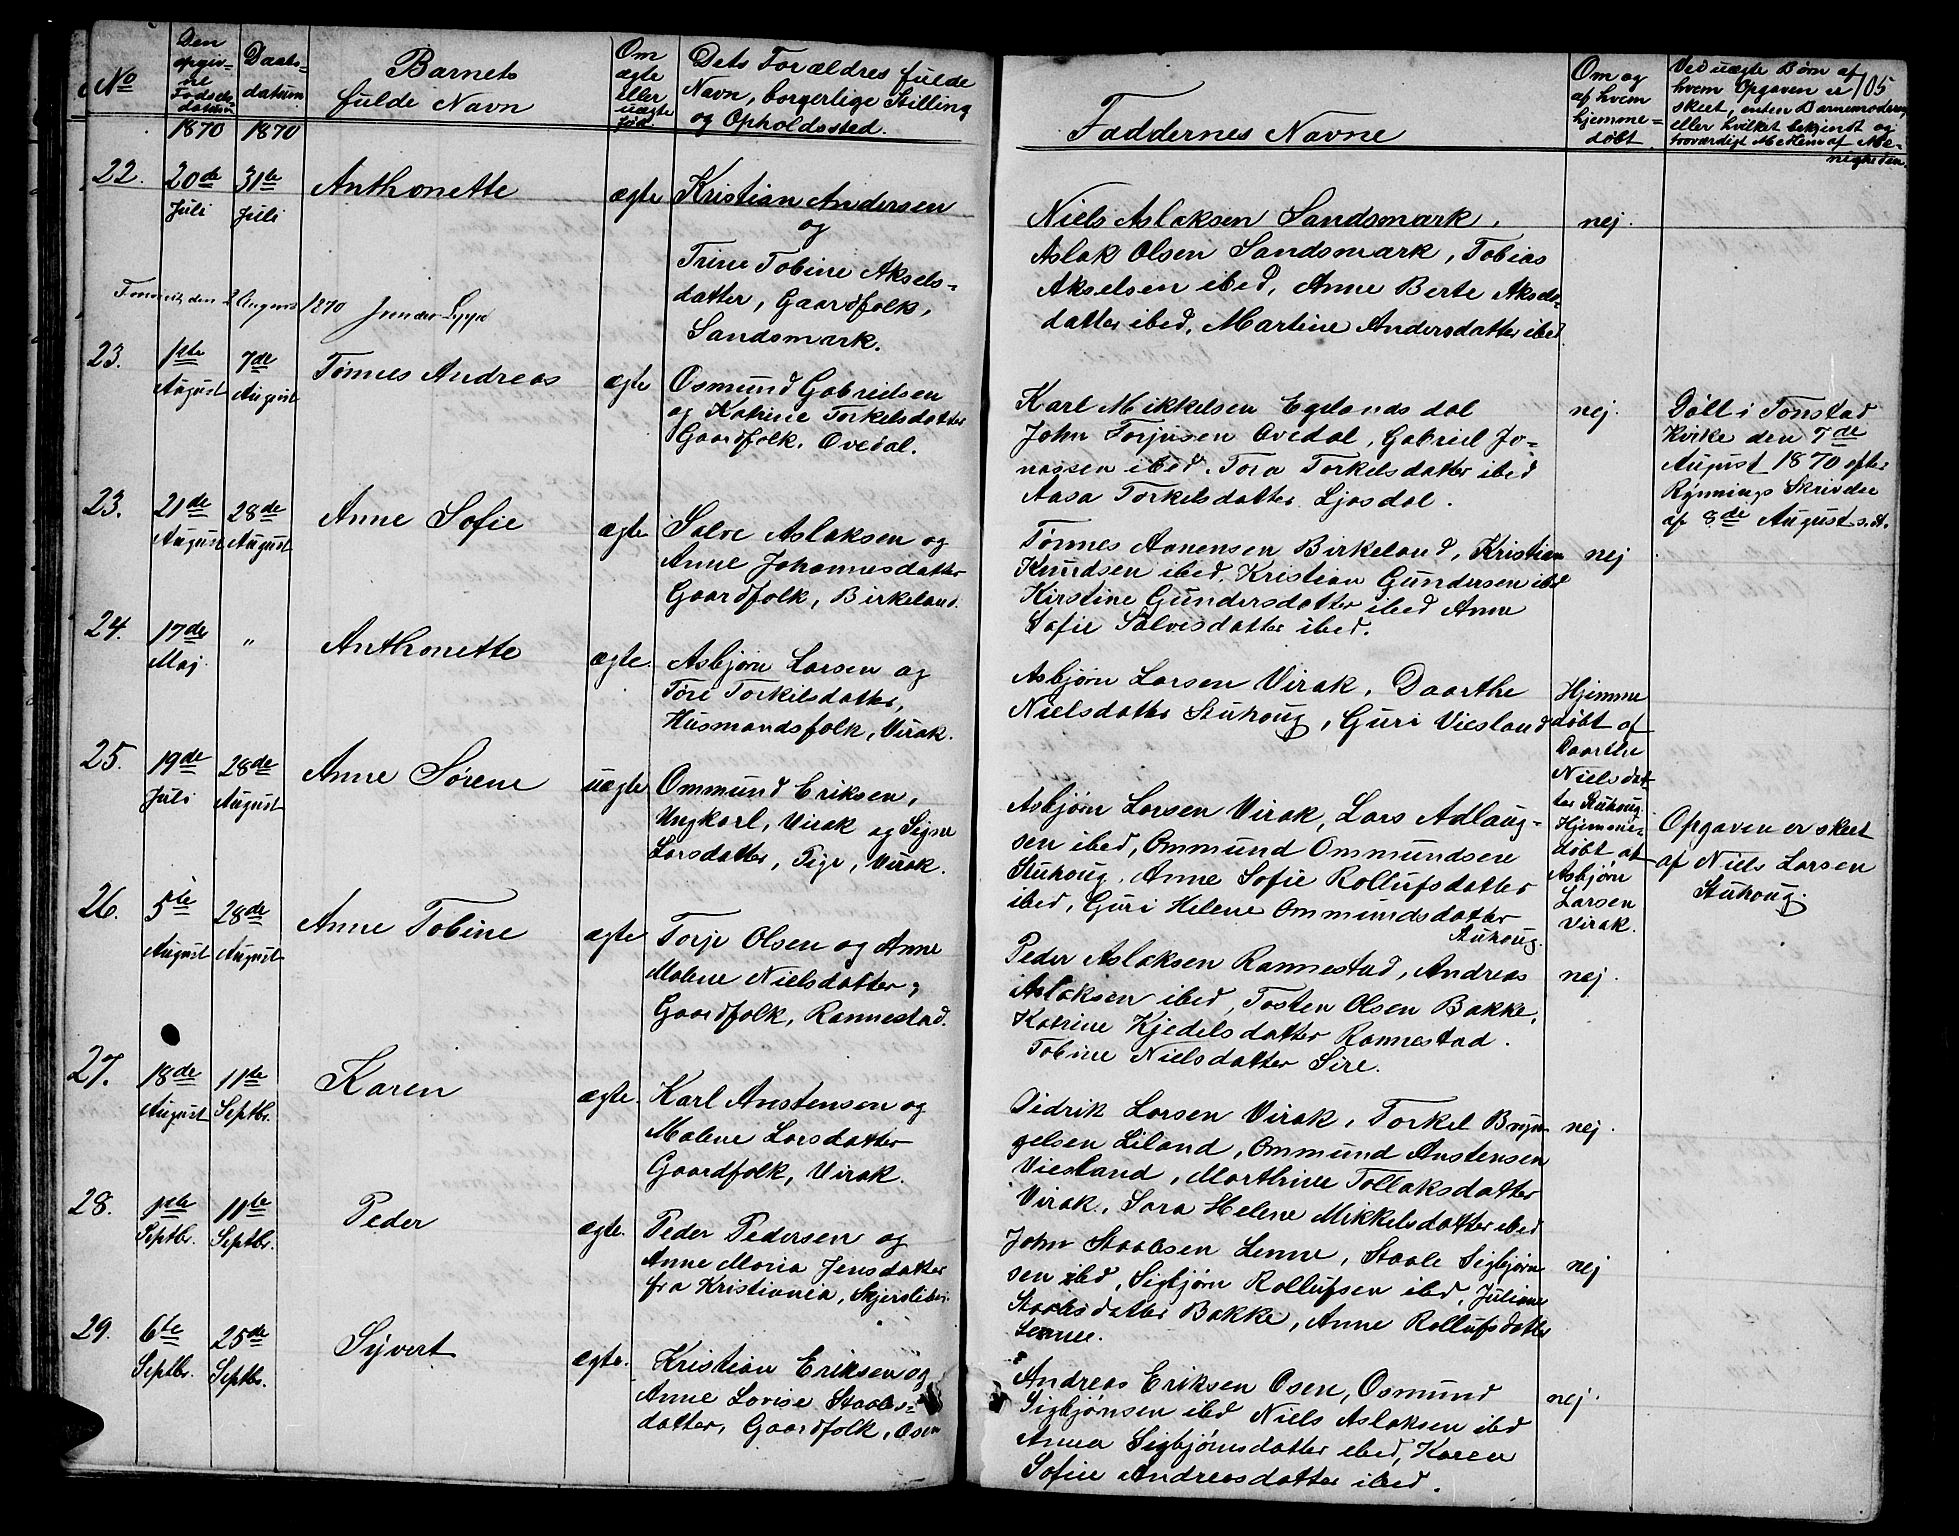 No
Den opgivne Fødselsdatum 1870
Daabsdatum 1870
Barnets fulde Navn
Om ægte eller uægte fød
Dets Forældres fulde
Navn, borgerlige Stilling
og Opholdssted.
Faddernes Navne
Om og af hvem hjemmedøbt
105
Ved uægte Børn af
hvem Opgaven er
skeet, enten Barnemoderen
eller hvilket bekjendt og
troværdigt Medlem af Me-
nigheden.
22. 20de Juli 31te Juli Anthonette ægte
Kristian Andersen
og
Trine Tobine Aksels-
datter, Gaardfolk,
Sandsmark.
Niels Aslaksen Sandsmark,
Aslak Olsen Sandsmark, Tobias
Akselsen ibed, Anne Berte Aksels-
datter ibed, Martine Andersdatter ibed
nej.
den 2 August 1870
23. 1ste August 7de August Tønnes Andreas ægte
Osmund Gabrielsen
og Katrine Torkelsdatter
Gaardfolk, Ovedal.
Karl Mikkelsen Egelandsdal
John Torjusen Ovedal, Gabriel Jo-
nassen ibed. Tora Torkelsdatter ibed
Aasa Torkelsdatter Ljosdal.
nej.
Døbt i Tonstad
Kirke den 7de
August 1870 efter
Rynnings Skrivelse
af 8de August s.A.
23. 21de August 28de August Anne Sofie ægte
Salve Aslaksen og
Anne Johannesdatter
Gaardfolk, Birkeland.
Tønnes Aanensen Birkeland, Kristian
Knudsen ibed, Kristian Gundersen ibed
Kirstine Gundersdatter ibed Anne
Sofie Salvesdatter ibed.
nej
24. 17de Maj " Anthonette ægte.
Asbjørn Larsen og
Tore Torkelsdatter,
Husmandsfolk, Virak.
Asbjørn Larsen Virak, Daarthe
Nielsdatter Stuhoug, Guri Viesland
Hjemme
døbt af
Daarthe
Nielsdat-
ter Stuhoug.
25. 19de Juli 28de August Anne Sørene uægte
Ommund Eriksen,
Ungkarl, Virak og Signe
Larsdatter, Pige, Virak.
Asbjørn Larsen Virak, Lars Adlaug-
sen ibed, Ommund Ommundsen
Stuhoug. Anne Sofie Rollufsdatter
ibed, Guri Helene Ommundsdatter
Stuhoug.
Hjemme-
døbt af
Asbjørn
Larsen
Virak.
Opgaven er skeet
af Niels Larsen
Stuhoug
26. 5te August 28de August Anne Tobine ægte
Torje Olsen og Anne
Malene Nielsdatter,
Gaardfolk, Rannestad.
Peder Aslaksen Rannestad, Andreas
Aslaksen ibed, Tosten Olsen Bakke,
Katrine Kjedelsdatter Rannestad.
Tobine Nielsdatter Sire.
nej.
27. 18de August 11te Septbr. Karen ægte.
Karl Anstensen og
Malene Larsdatter
Gaardfolk, Virak.
Didrik Larsen Virak, Torkel Bryn-
gelsen Liland, Ommund Anstensen
Viesland, Marthine Tollaksdatter
Virak, Sara Helene Mikkelsdatter ibed
nej.
28. 1ste Septbr. 11te Septbr. Peder ægte.
Peder Pedersen og
Anne Maria Jensdatter
fra Kristiania,
John Staalesen Lenne, Staale Sigbjørn-
sen ibed, Sigbjørn Rollufsen ibed, Juliane
Staalesdatter Bakke, Anne Rollufsdatter
Lenne.
nej
29. 6te Septbr. 25de Septbr. Syvert ægte.
Kristian Eriksen og
Anne Lovise Staales-
datter, Gaardfolk, Osen
Andreas Eriksen Osen, Osmund
Sigbjørnsen ibed Niels Aslaksen ibed
Anna Sigbjørnsdatter ibed, Karen
Sofie Andreasdatter ibed.
nej.